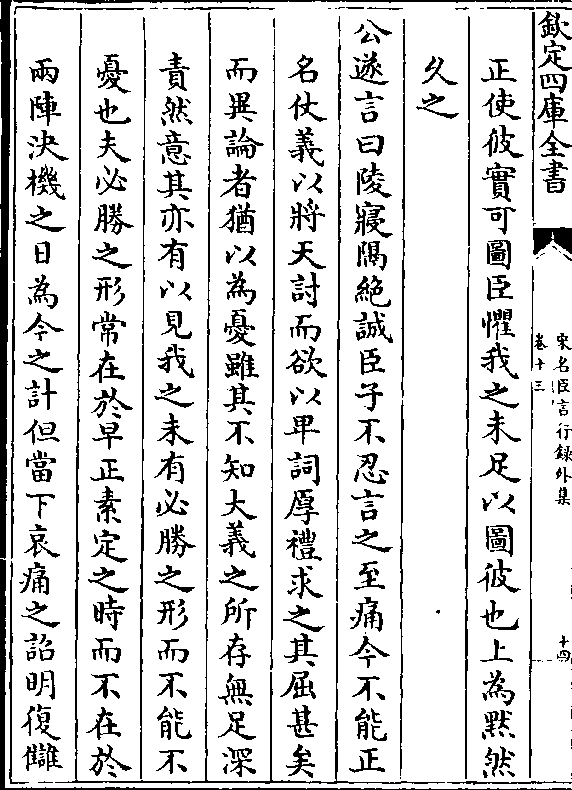 欽定四庫全書
宋名臣言行録外集
卷十三
十四
正使彼實可圖臣懼我之未足以圖彼也上為黙然
久之
公遂言曰陵寢隔絶誠臣子不忍言之至痛今不能正
名仗義以將天討而欲以卑詞厚禮求之其屈甚矣
而異論者猶以為憂雖其不知大義之所存無足深
責然意其亦有以見我之未有必勝之形而不能不
憂也夫必勝之形常在於早正素定之時而不在於
兩陣決機之日為今之計但當下哀痛之詔明復讎